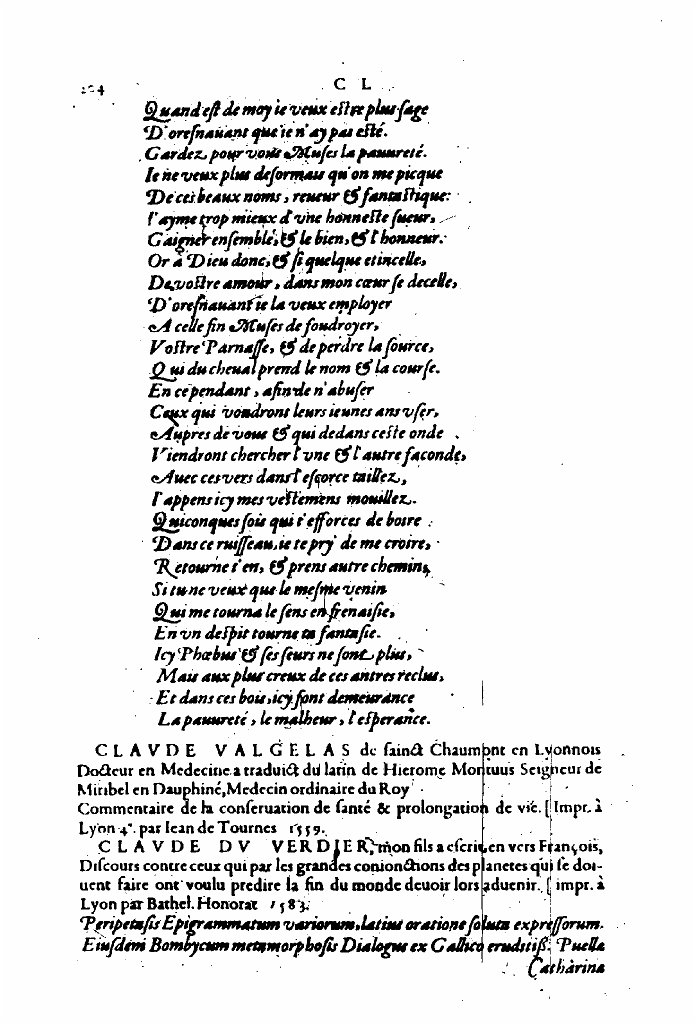 C L
Quand est de moy ie veux estre plus sage
D'oresnauant que ie n'ay pas esté.
Gardez pour vous Muses la pauureté.
Ie ne veux plus desormais qu'on me picque
De ces beaux noms, reueur & fantastique:
I'ayme trop mieux d'vne honneste sueur,
Gaigner ensemble, & le bien, & l'honneur.
Or à Dieu donc, & si quelque etincelle,
De vostre amour, dans mon cœur se decelle,
D'oresnauant ie la veux employer
A celle fin Muses de foudroyer,
Vostre Parnasse, & de perdre la source,
Qui du cheual prend le nom & la course.
En cependant, afin de n'abuser
Ceux qui voudront leurs ieunes ans vser,
Aupres de vous & qui dedans ceste onde
Viendront chercher l'vne & l'autre faconde,
Auec ces vers dans l'escorce taillez,
I'appens icy mes vestemens mouillez.
Quiconques sois qui t'efforces de boire
Dans ce ruisseau, ie te pry' de me croire,
Retourne t'en, & prens autre chemin,
Si tu ne veux que le mesme venin
Qui me tourna le sens en frenaisie,
En vn despit tourne ta fantasie.
Icy Phœbus & ses seurs ne sont plus,
Mais aux plus creux de ces antres reclus,
Et dans ces bois, icy font demeurance
La pauureté, le malheur, l'esperance.
CLAVDE VALGELAS de sainct Chaumont en Lyonnois
Docteur en Medecine a traduict du latin de Hierome Montuus Seigneur de
Miribel en Dauphiné, Medecin ordinaire du Roy
Commentaire de la conseruation de santé & prolongation de vie. [Impr. à
Lyon 4°. par Iean de Tournes 1559.
CLAVDE DV VERDIER, mon fils a escrit en vers François,
Discours contre ceux qui par les grandes conionctions des planetes qui se doi-
uent faire ont voulu predire la fin du monde deuoir lors aduenir. [impr. à
Lyon par Bathel. Honorat 1583.
Peripetasis Epigrammatum variorum, latius oratione soluta expressorum.
Eiusdem Bombycum metamorphosis Dialogus ex Gallico eruditiss. Puella
Catharina